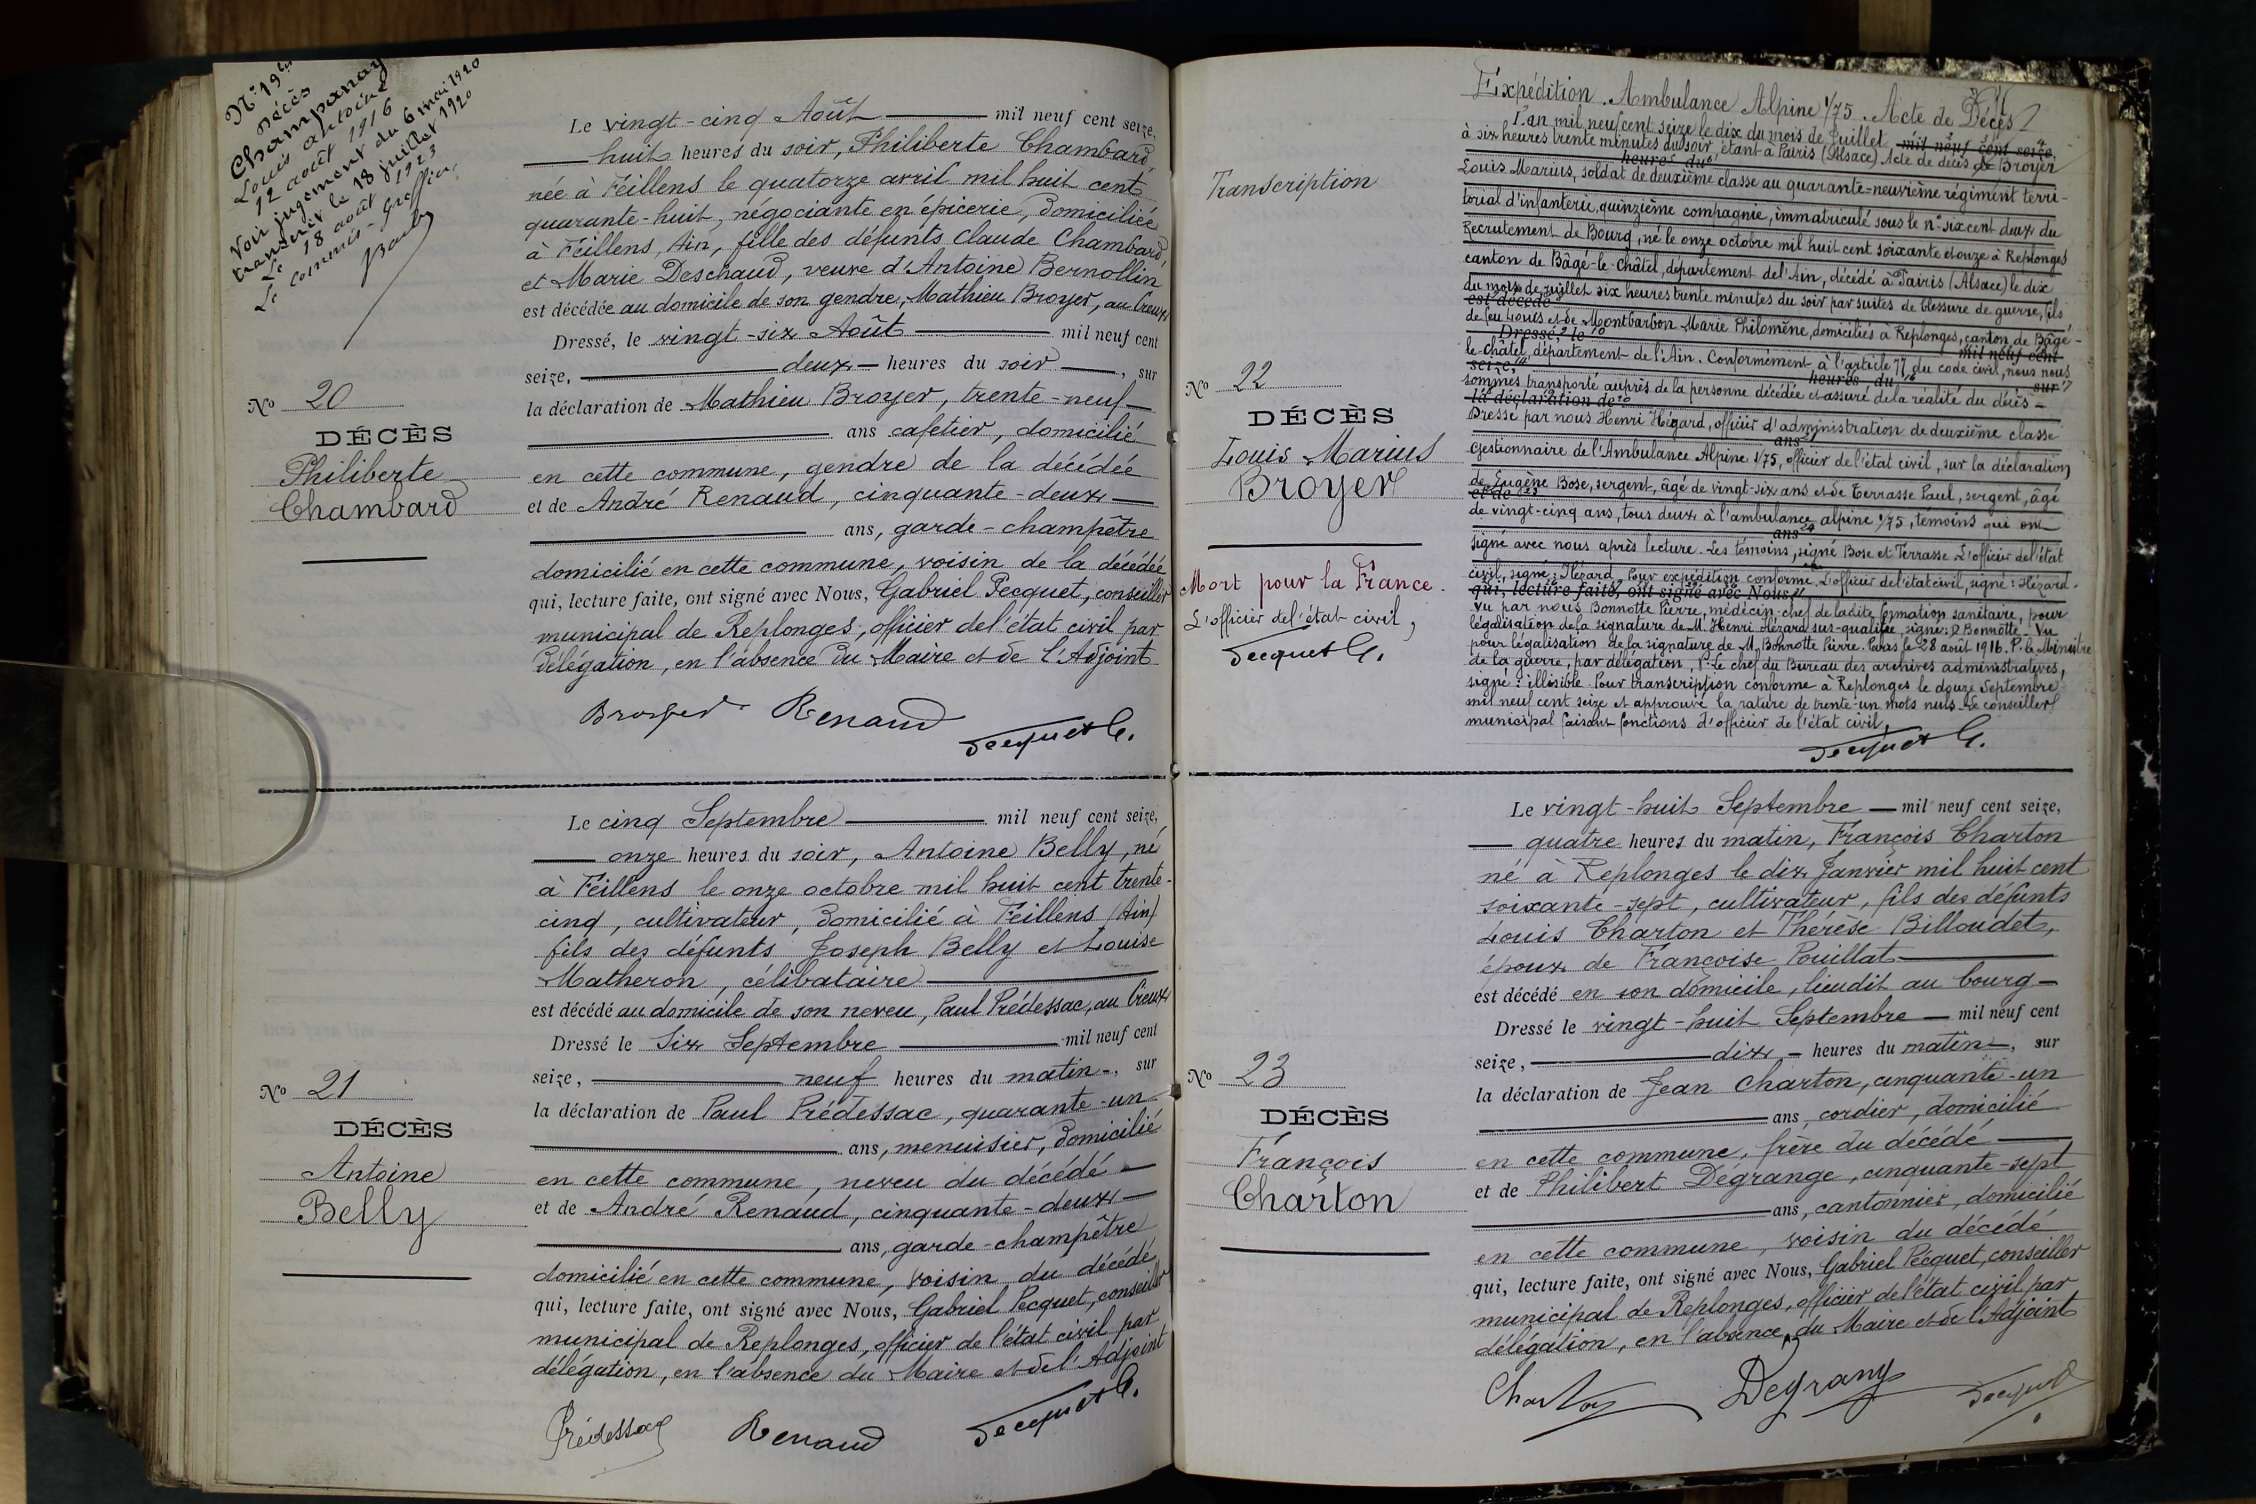 N° 19 bis
Décès
Champanay
Louis Antoine
12 août 1916
Voir jugement du 6 mai 1920
transcrit le 18 juillet 1920
Le 18 août 1923
Le commis-Greffier
Le vingt-cinq Août mil neuf cent seize,
huit heures du soir, Philiberte Chambard
née à Feillens le quatorze avril mil huit cent
quarante-huit, négociante en épicerie, domiciliée
à Feillens, Ain, fille des défunts Claude Chambard,
et Marie Deschaud, veuve d'Antoine Bernollin
est décédée au domicile de son gendre, Mathieu Broyer, au Creux
Dressé, le vingt-six Août mil neuf cent
seize, deux heures du soir, sur
la déclaration de Mathieu Broyer, trente-neuf
ans cafetier, domicilié
en cette commune, gendre de la décédée
et de André Renaud, cinquante-deux
ans, garde-champêtre
domicilié en cette commune, voisin de la décédée
qui, lecture faite, ont signé avec Nous, Gabriel Pecquet, conseiller
municipal de Replonges, officier de l'état civil par
délégation, en l'absence du Maire et de l'Adjoint
Broyer Renaud Pecquet G.
N° 20
DÉCÈS
Philiberte
Chambard
Le cinq Septembre mil neuf cent seize,
onze heures du soir, Antoine Belly, né
à Feillens le onze octobre mil huit cent trente-
cinq, cultivateur, domicilié à Feillens (Ain)
fils des défunts Joseph Belly et Louise
Matheron, célibataire
est décédé au domicile de son neveu, Paul Prédessac, au Creux
Dressé le Six Septembre mil neuf cent
seize, neuf heures du matin, sur
la déclaration de Paul Prédessac, quarante-un
ans, menuisier, domicilié
en cette commune, neveu du décédé
et de André Renaud, cinquante-deux
ans, garde-champêtre
domicilié en cette commune, voisin du décédé
qui, lecture faite, ont signé avec Nous, Gabriel Pecquet, conseiller
municipal de Replonges, officier de l'état civil par
délégation, en l'absence du Maire et de l'Adjoint
Prédessac Renaud Pecquet G.
N° 21
DÉCÈS
Antoine
Belly
Transcription
N° 22
DÉCÈS
Louis Marius
Broyer
Mort pour la France.
L'officier de l'état civil,
Pecquet G.
Expédition. Ambulance Alpine 1/75. Acte de Décès
L'an mil neuf cent seize le dix du mois de Juillet mil neuf cent seize
à six heures trente minutes du soir étant à Pairis (Alsace) Acte de décès de Broyer
heures du
Louis Marius, soldat de deuxième classe au quarante-neuvième régiment terri-
torial d'infanterie, quinzième compagnie, immatriculé sous le n° six cent deux du
Recrutement de Bourg, né le onze octobre mil huit cent soixante et onze à Replonges
canton de Bâgé-le-Châtel, département de l'Ain, décédé à Pairis (Alsace) le dix
du mois de juillet six heures trente minutes du soir par suites de blessure de guerre, fils
est décédé
de feu Louis et de Montbarbon Marie Philomène, domiciliés à Replonges, canton de Bâgé-
Dressé, le mil neuf cent
le-Châtel, département de l'Ain. Conformément à l'article 77 du code civil, nous nous
seize, heures du sur
sommes transporté auprès de la personne décédée et assuré de la réalité du décès
la déclaration de
Dressé par nous Henri Hézard, officier d'administration de deuxième classe
ans
Gestionnaire de l'Ambulance Alpine 1/75, officier de l'état civil, sur la déclaration
de Eugène Bose, sergent, âgé de vingt-six ans et de Terrasse Paul, sergent, âgé
et de
de vingt-cinq ans, tous deux à l'ambulance alpine 1/75, témoins qui ont
ans
signé avec nous après lecture. Les témoins, signé Bose et Terrasse L'officier de l'état
civil, signé: Hézard. Pour expédition conforme. L'officier de l'état civil, signé: Hézard.
qui, lecture faite, ont signé avec Nous,
Vu par nous Bonnotte Pierre, médecin-chef de ladite formation sanitaire, pour
légalisation de la signature de M. Henri Hézard sus-qualifié, signé: P. Bonnotte. Vu
pour légalisation de la signature de M. Bonnotte Pierre. Paris le 28 août 1916. P. le Ministre
de la guerre, par délégation, P. le chef du Bureau des archives administratives,
signé: illisible. Pour transcription conforme à Replonges le douze Septembre
mil neuf cent seize et approuvé la rature de trente-un mots nuls. Le conseiller
municipal faisant fonctions d'officier de l'état civil,
Pecquet G.
Le vingt-huit Septembre mil neuf cent seize,
quatre heures du matin, François Charton
né à Replonges le dix Janvier mil huit cent
soixante-sept, cultivateur, fils des défunts
Louis Charton et Thérèse Billoudet,
époux de Françoise Pouillat
est décédé en son domicile, lieudit au bourg
Dressé le vingt-huit Septembre mil neuf cent
seize, dix heures du matin, sur
la déclaration de Jean Charton, cinquante-un
ans, cordier, domicilié
en cette commune, frère du décédé
et de Philibert Degrange, cinquante-sept
ans, cantonnier, domicilié
en cette commune, voisin du décédé
qui, lecture faite, ont signé avec Nous, Gabriel Pecquet, conseiller
municipal de Replonges, officier de l'état civil par
délégation, en l'absence du Maire et de l'Adjoint
Charton Degrang Pecquet
N° 23
DÉCÈS
François
Charton